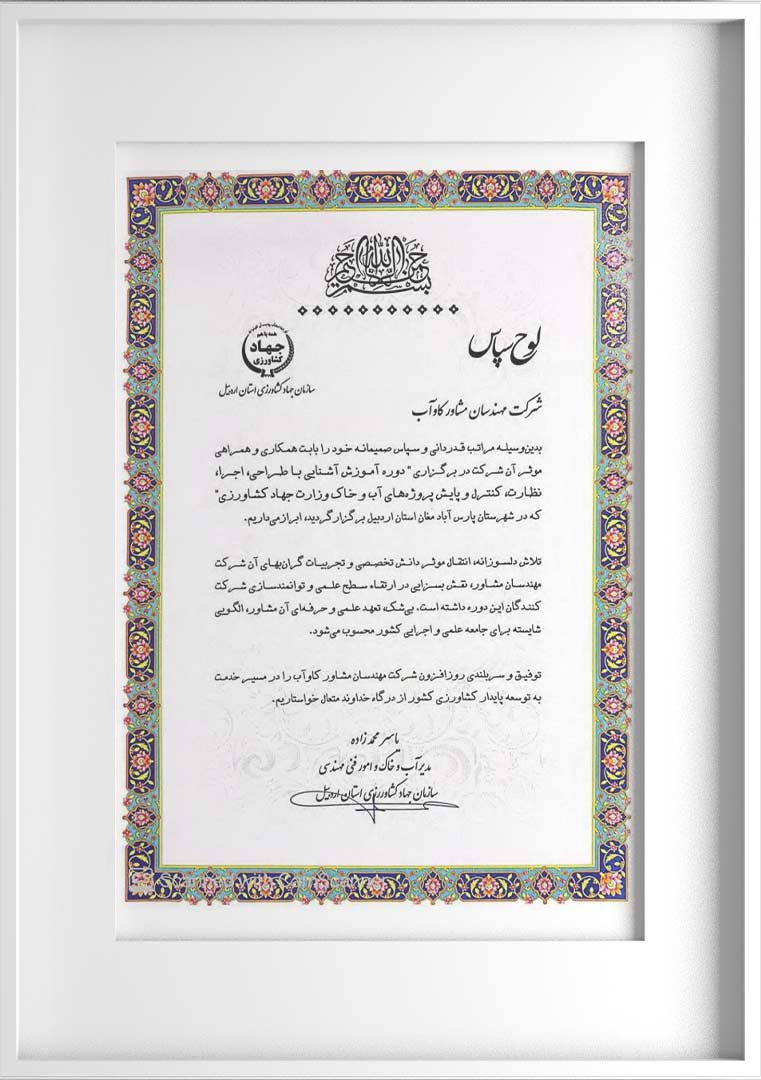 بسم الله الرحمن الرحیم
لوح سپاس
همه با هم
جهاد
کشاورزی
سازمان جهاد کشاورزی استان اردبیل
شرکت مهندسان مشاور کاوآب
بدین‌وسیله مراتب قدردانی و سپاس صمیمانه خود را بابت همکاری و همراهی
موثر آن شرکت در برگزاری " دوره آموزش آشنایی با طراحی، اجرا،
نظارت، کنترل و پایش پروژه‌های آب و خاک وزارت جهاد کشاورزی"
که در شهرستان پارس آباد مغان استان اردبیل برگزار گردید، ابراز می‌داریم.
تلاش دلسوزانه، انتقال موثر دانش تخصصی و تجربیات گران‌بهای آن شرکت
مهندسان مشاور، نقش بسزایی در ارتقاء سطح علمی و توانمندسازی شرکت
کنندگان این دوره داشته است. بی‌شک، تعهد علمی و حرفه‌ای آن مشاور، الگویی
شایسته برای جامعه علمی و اجرایی کشور محسوب می‌شود.
توفیق و سربلندی روزافزون شرکت مهندسان مشاور کاوآب را در مسیر خدمت
به توسعه پایدار کشاورزی کشور از درگاه خداوند متعال خواستاریم.
یاسر محمدزاده
مدیر آب و خاک و امور فنی مهندسی
سازمان جهاد کشاورزی استان اردبیل
Scanned with CamScanner